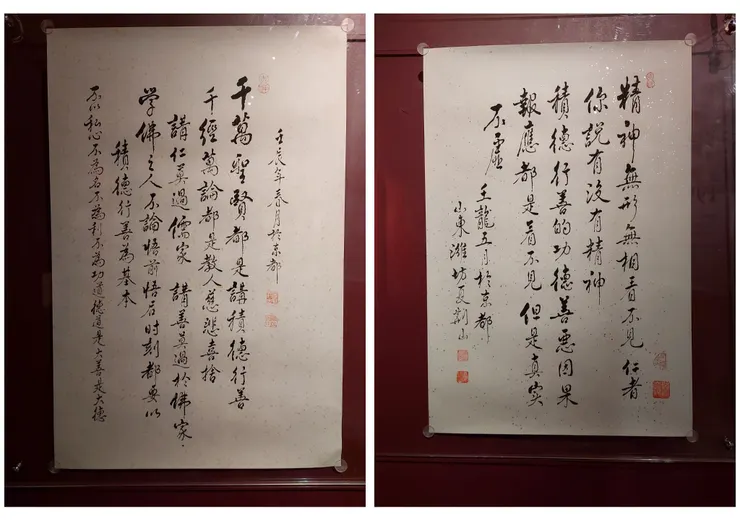 壬辰年春月於京都
千萬聖賢都是講積德行善
千經萬論都是教人慈悲喜捨
講仁莫過儒家 講善莫過於佛家、
学佛之人不論悟前悟后时刻都要以
積德行善為基本
不以私心不為名不為利不為功道德這是大善是大德
精神無形無相看不見 仁者
你說有沒有精神
積德行善的功德善惡因果
報應都是看不見但是真实
不虛
壬龍五月於京都
山東濰坊夏荊山